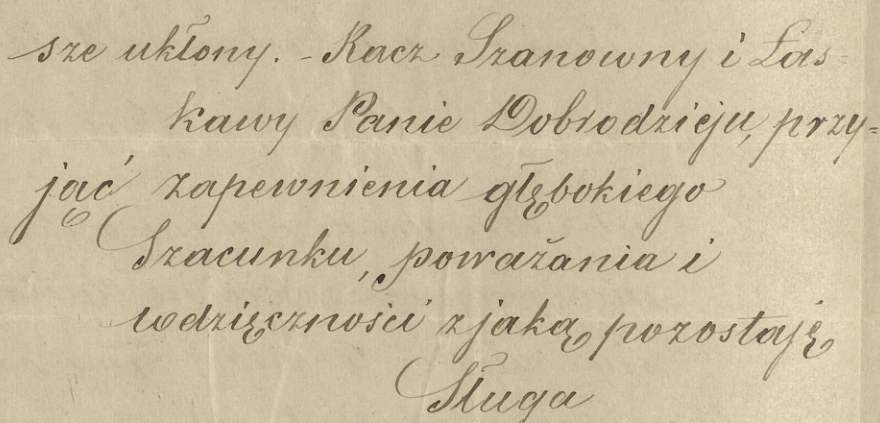 sze ukłony. - Racz Szanowny i Łas-
kawy Panie Dobrodzieju, przy=
jąć zapewnienia głębokiego
Szacunku, poważania i
wdzięczności z jaką pozostaję
Sługa